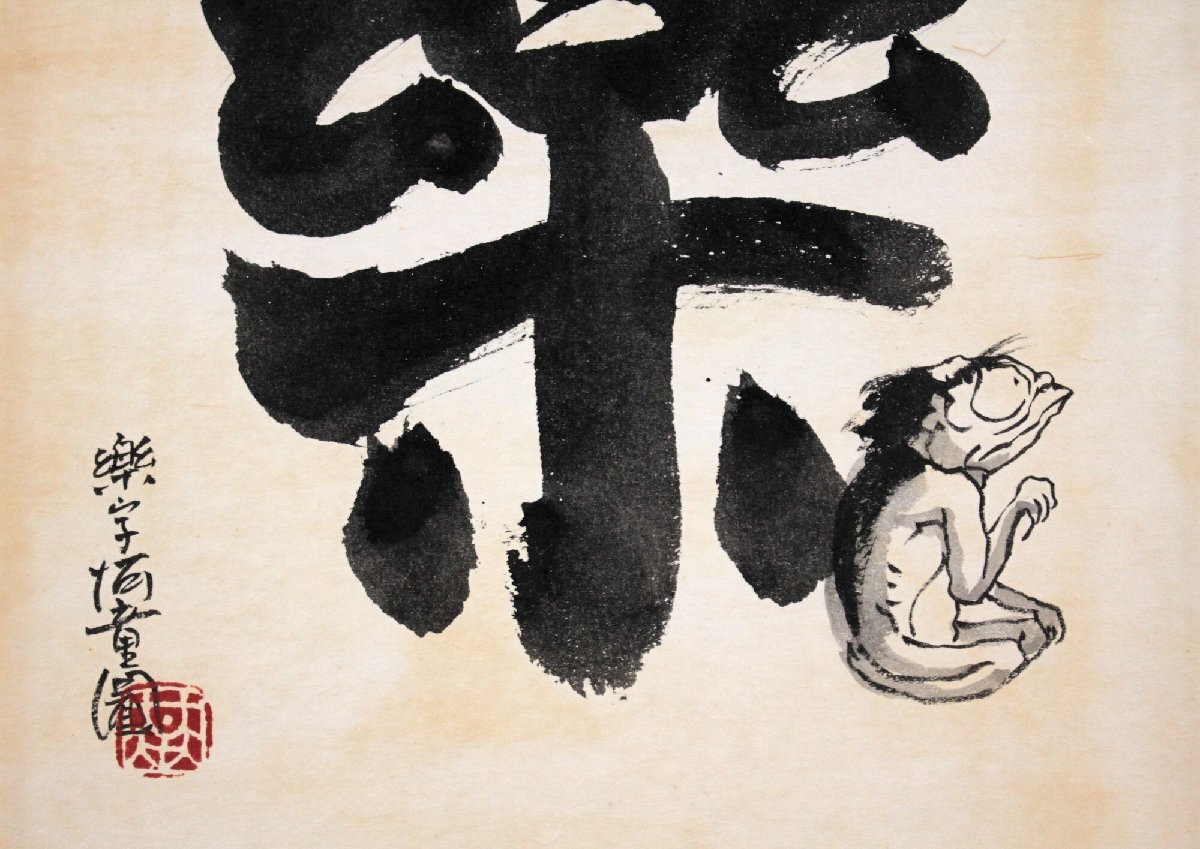 樂
樂字河童圖